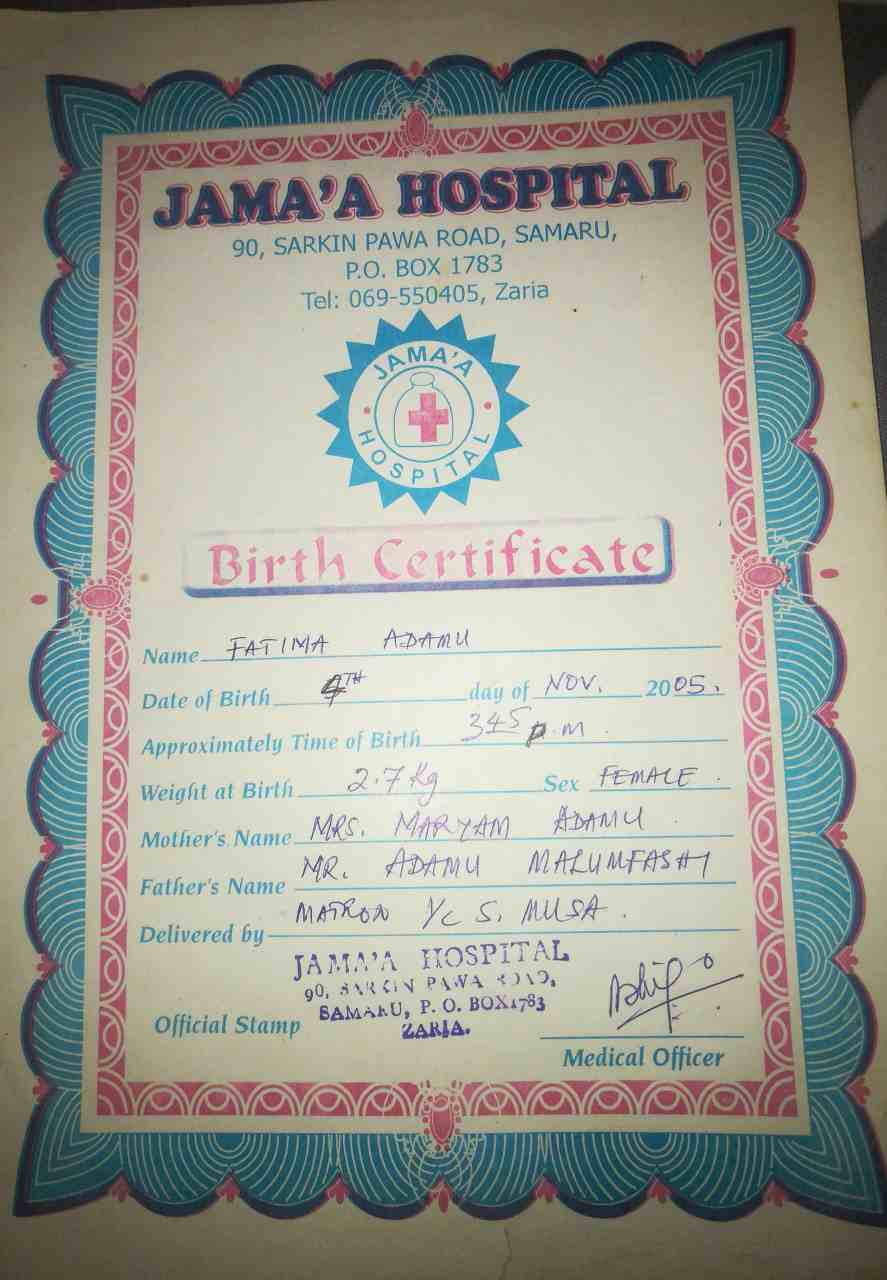 JAMA'A HOSPITAL
90, SARKIN PAWA ROAD, SAMARU,
P.O. BOX 1783
Tel: 069-550405, Zaria
JAMA'A
HOSPITAL
Birth Certificate
Name FATIMA ADAMU
Date of Birth 4TH day of NOV. 2005.
Approximately Time of Birth 345 p.m.
Weight at Birth 2.7 Kg Sex FEMALE.
Mother's Name MRS. MARYAM ADAMU.
Father's Name MR. ADAMU MALUMFASHI
Delivered by MATRON I/C S. MUSA.
JAMA'A HOSPITAL
90, SARKIN PAWA ROAD,
SAMARU, P. O. BOX1783
ZARIA.
Official Stamp
Medical Officer